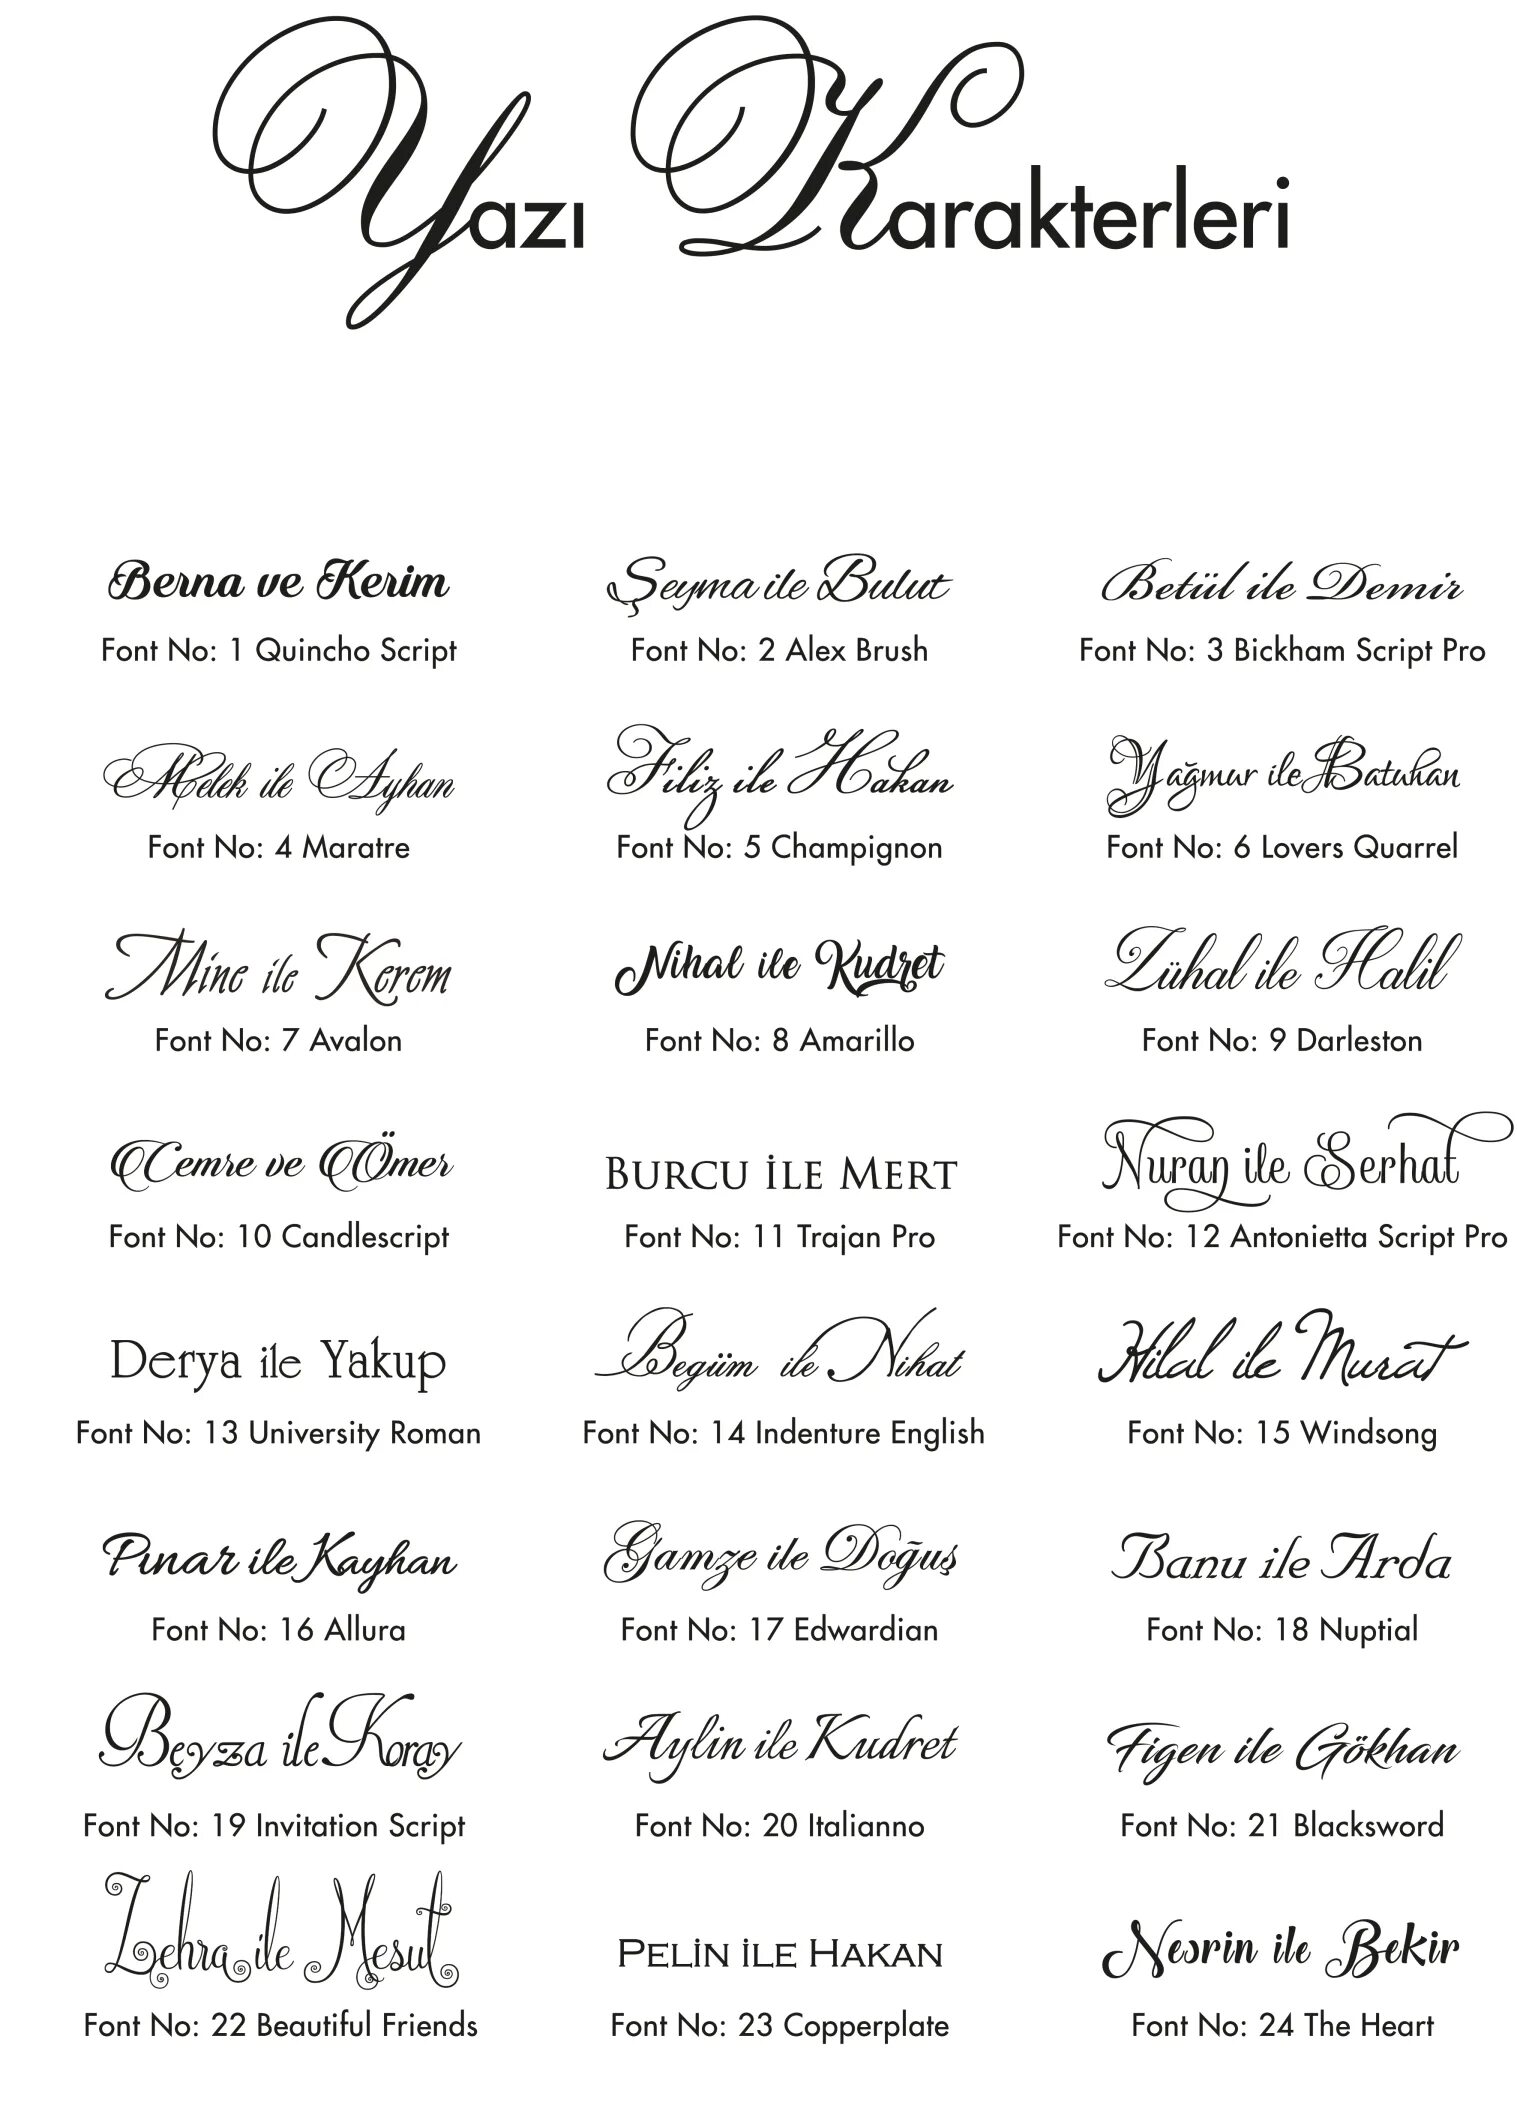 Yazı Karakterleri
Berna ve Kerim
Font No: 1 Quincho Script
Şeyma ile Bulut
Font No: 2 Alex Brush
Betül ile Demir
Font No: 3 Bickham Script Pro
Melek ile Ayhan
Font No: 4 Maratre
Filiz ile Hakan
Font No: 5 Champignon
Yağmur ile Batuhan
Font No: 6 Lovers Quarrel
Mine ile Kerem
Font No: 7 Avalon
Nihal ile Kudret
Font No: 8 Amarillo
Zühal ile Halil
Font No: 9 Darleston
Cemre ve Ömer
Font No: 10 Candlescript
BURCU İLE MERT
Font No: 11 Trajan Pro
Nuran ile Serhat
Font No: 12 Antonietta Script Pro
Derya ile Yakup
Font No: 13 University Roman
Begüm ile Nihat
Font No: 14 Indenture English
Hilal ile Murat
Font No: 15 Windsong
Pınar ile Kayhan
Font No: 16 Allura
Gamze ile Doğuş
Font No: 17 Edwardian
Banu ile Arda
Font No: 18 Nuptial
Beyza ile Koray
Font No: 19 Invitation Script
Aylin ile Kudret
Font No: 20 Italianno
Figen ile Gökhan
Font No: 21 Blacksword
Zehra ile Mesut
Font No: 22 Beautiful Friends
PELİN İLE HAKAN
Font No: 23 Copperplate
Nesrin ile Bekir
Font No: 24 The Heart